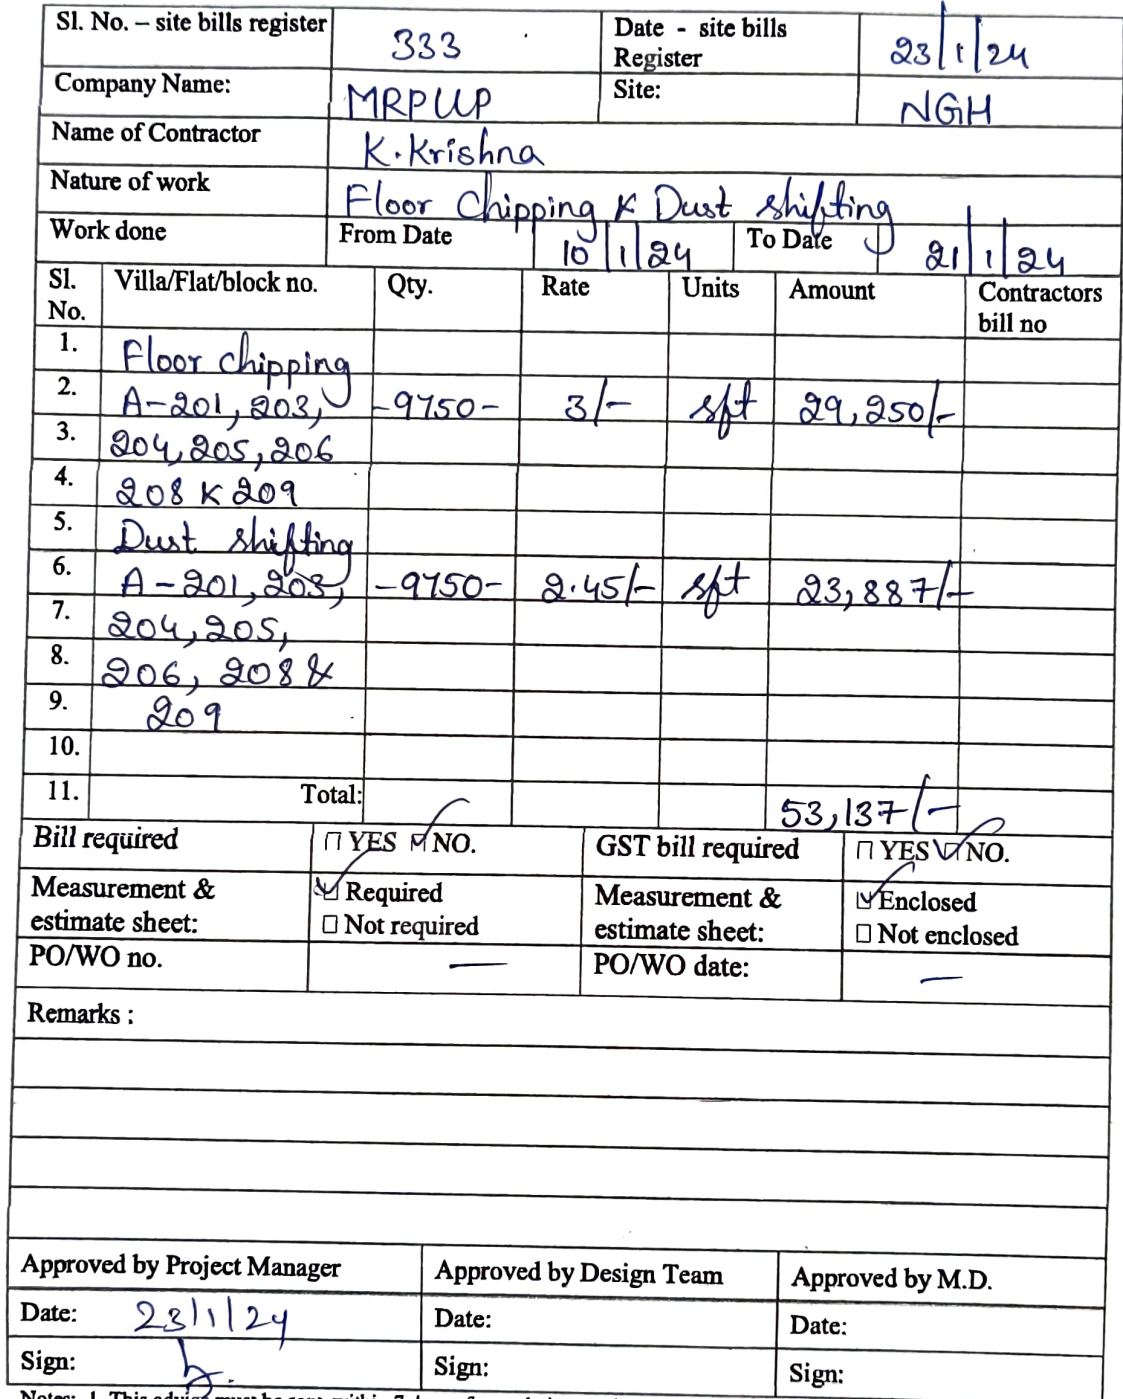 Sl. No. – site bills register 333 Date - site bills Register 23/1/24
Company Name: MRPUP Site: NGH
Name of Contractor K. Krishna
Nature of work Floor Chipping & Dust shifting
Work done From Date 10/1/24 To Date 21/1/24
Sl. No. Villa/Flat/block no. Qty. Rate Units Amount Contractors bill no
1. Floor chipping
2. A-201, 203, -9750- 3/- sft 29,250/-
3. 204, 205, 206
4. 208 & 209
5. Dust shifting
6. A-201, 203, -9750- 2.45/- sft 23,887/-
7. 204, 205,
8. 206, 208 &
9. 209
10.
11. Total: 53,137/-
Bill required ☐ YES ☑ NO. GST bill required ☐ YES ☑ NO.
Measurement & estimate sheet: ☑ Required Measurement & estimate sheet: ☑ Enclosed
☐ Not required ☐ Not enclosed
PO/WO no. — PO/WO date: —
Remarks :
Approved by Project Manager Approved by Design Team Approved by M.D.
Date: 23/1/24 Date: Date:
Sign: Sign: Sign: